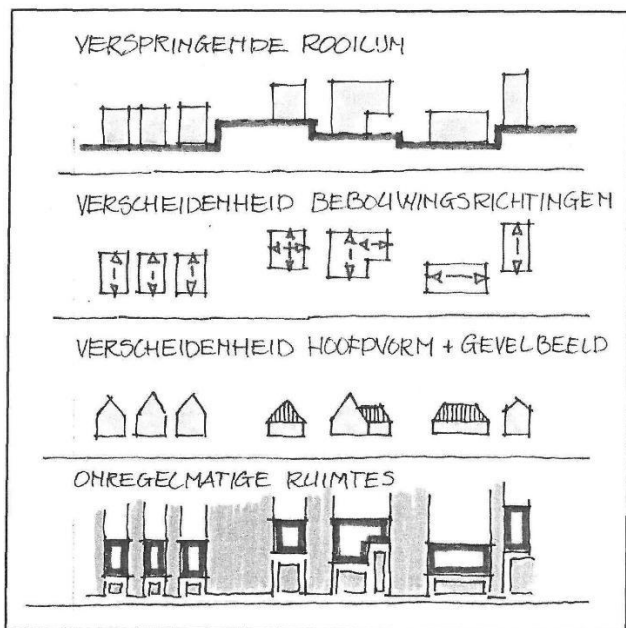 VERSPRINGENDE ROOILIJN
VERSCHEIDENHEID BEBOUWINGSRICHTINGEN
VERSCHEIDENHEID HOOFDVORM + GEVELBEELD
ONREGELMATIGE RUIMTES